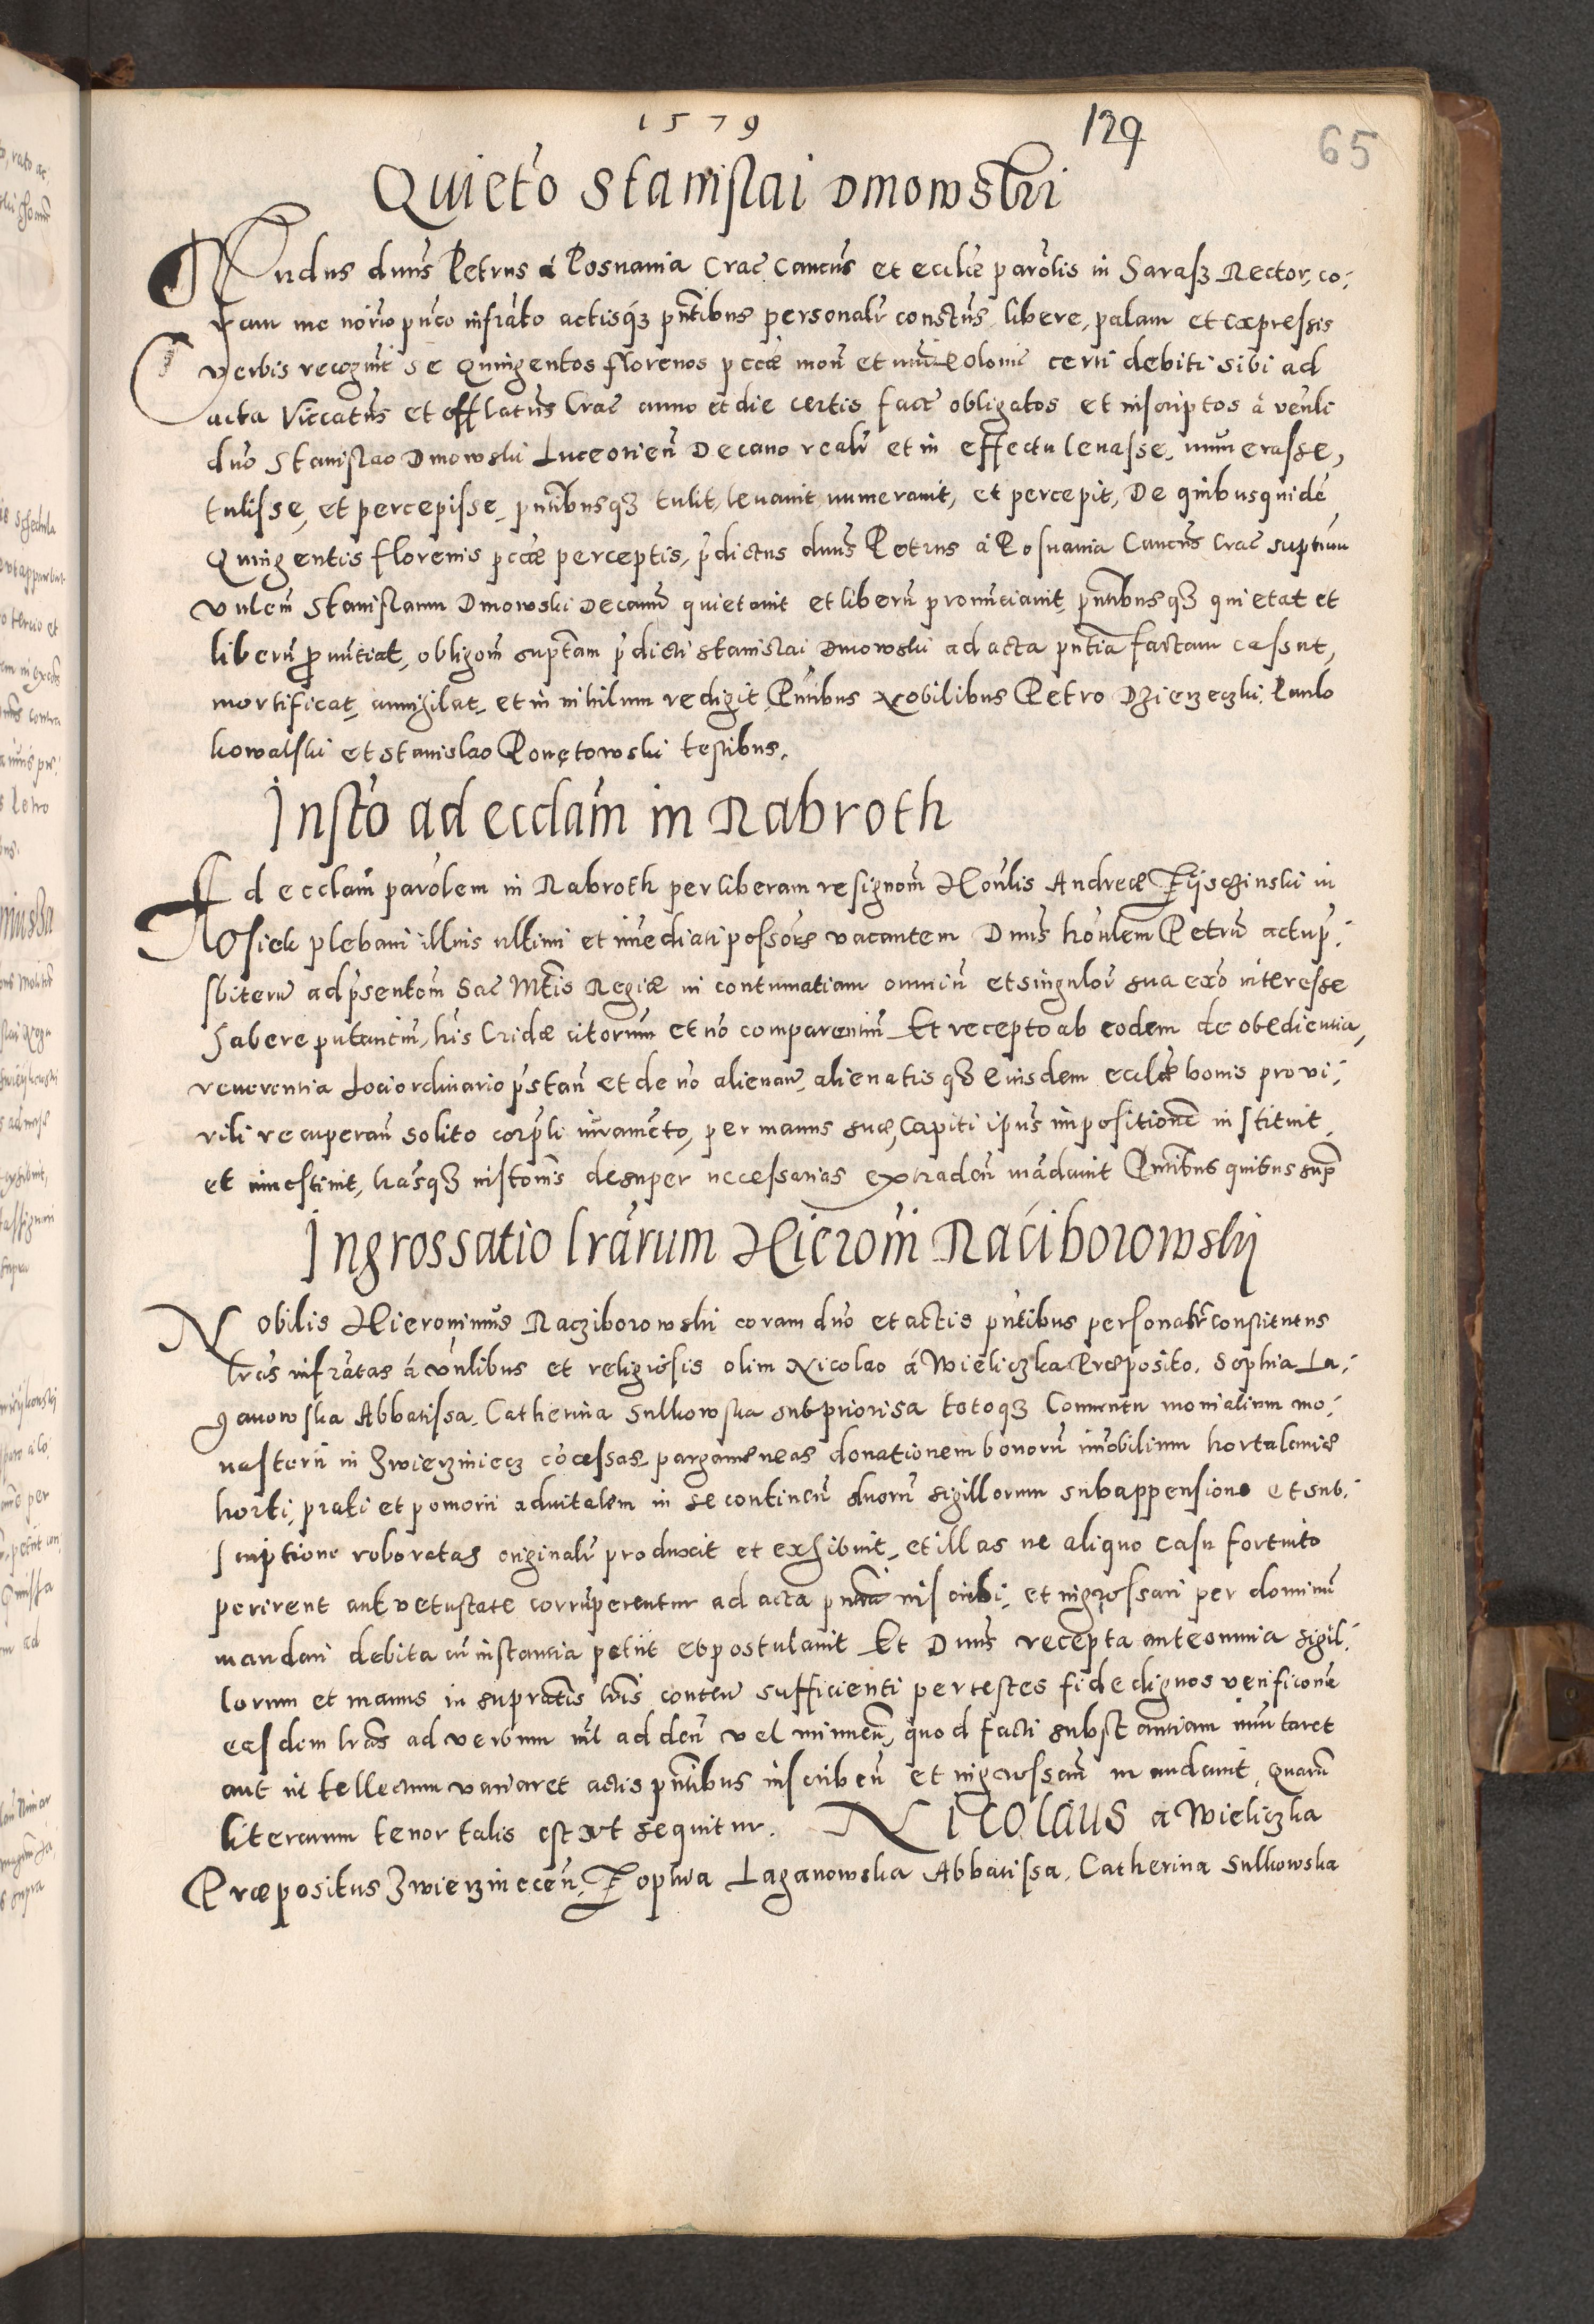 1579
129
65
Quieto Stanislai Dmowski
Rndus dnus Petrus á Posnania Crac Cancus et ecclie parolis in Skarass Rector, co¬
ram me norio puco infrato actisq3 pntibus personalr constus libere, palam et expressis
verbis recognit se Quingentos florenos pccae mon et nui Polonic certi debiti sibi ad
acta Viccatus et offlatus Crac anno et die certis fact obligatos et inscriptos á venli
dno Stanislao Dmowski Luceorien Decano realr et in effectu levasse, numerasse,
tulisse, et percepisse, pntibusq3 tulit, levavit numeravit, et percepit, De quibusquide
Quingentis florenis pccae perceptis, pdictus dnus Petrus á Posnania Cancus Crac suptum
vnlem Stanislaum Dmowski Decanu quietavit et liberu pronunciavit, pntibusq3 quietat et
liberu pnuntiat, obligom suptam pdicti Stanislai Dmowski ad acta pntia factam cassat,
mortificat, annigilat, et in nihilum redigit Pntibus Nobilibus Petro Dzierzeczki, Paulo
Kowalski et Stanislao Ponętowski testibus.
Insto ad ecclam in Nabroth
Ad ecclam parolem in Nabroth per liberam resignom Honlis Andreae Fijsczinski in
Osiek plebani illius ultimi et imediati possoris vacantem Dnus honlem Petru actu p¬
sbiteru ad psentom Sac Mtis Regiae in contumatiam omniu et singulor sua exo interesse
habere putantiu, his Cridae citorum et no comparentiu Et recepto ab eodem de obedientia,
reverentia Loci ordinario pstan et de no alienan, alienatis q3 eiusdem eccliae bonis pro vi¬
rili recuperan solito corpli iuramento, per manus suae, Capiti ipus impositione instituit,
et investivit, lrasq3 instomis desuper necessarias extraden madavit Pntibus quibus sup
Ingrossatio lrarum Hieroni Raciborowskij
Nobilis Hieronimus Racziborowski coram dno et actis pntibus personalr constitutus
lras infratas á vnlibus et religiosis olim Nicolao á Wieliczka Praeposito, Sophia La¬
ganowska Abbatissa, Catherina Sulkowska subpriorisa totoq3 Conventu monialium mo¬
nasterii in Zwierziniecz cocessas pargameneas donationem bonoru imobilium hortalemias
horti, prati et pomorii advitalem in se continen duoru sigillorum subappensione et sub¬
scriptione roboratas originalr produxit et exhibuit, et illas ne aliquo casu fortuito
perirent aut vetustate corruperentur ad acta pntia inscribi, et ingrossari per dominu
mandari debita cu instantia petiit et postulavit Et Dnus recepta ante omnia sigil¬
lorum et manus in supratis lris conten sufficienti per testes fide dignos verificone
easdem lras ad verbum nil adden vel minuen, quod facti substantiam imutaret
aut intellectum variaret actis pntibus inscriben et ingrossan mandavit, Quaru
literarum tenor talis est ut sequitur. Nicolaus a Wieliczka
Praepositus Zwierzinecen, Zophia Laganowska Abbatissa, Catherina Sulkowska